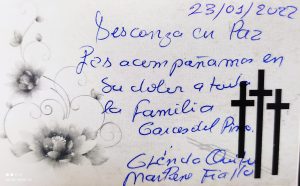 23/01/2022
Descanza en Paz
Los acompañamos en
su dolor a toda
la familia
Garces del Pino.
Glenda
Martinez Fiallo